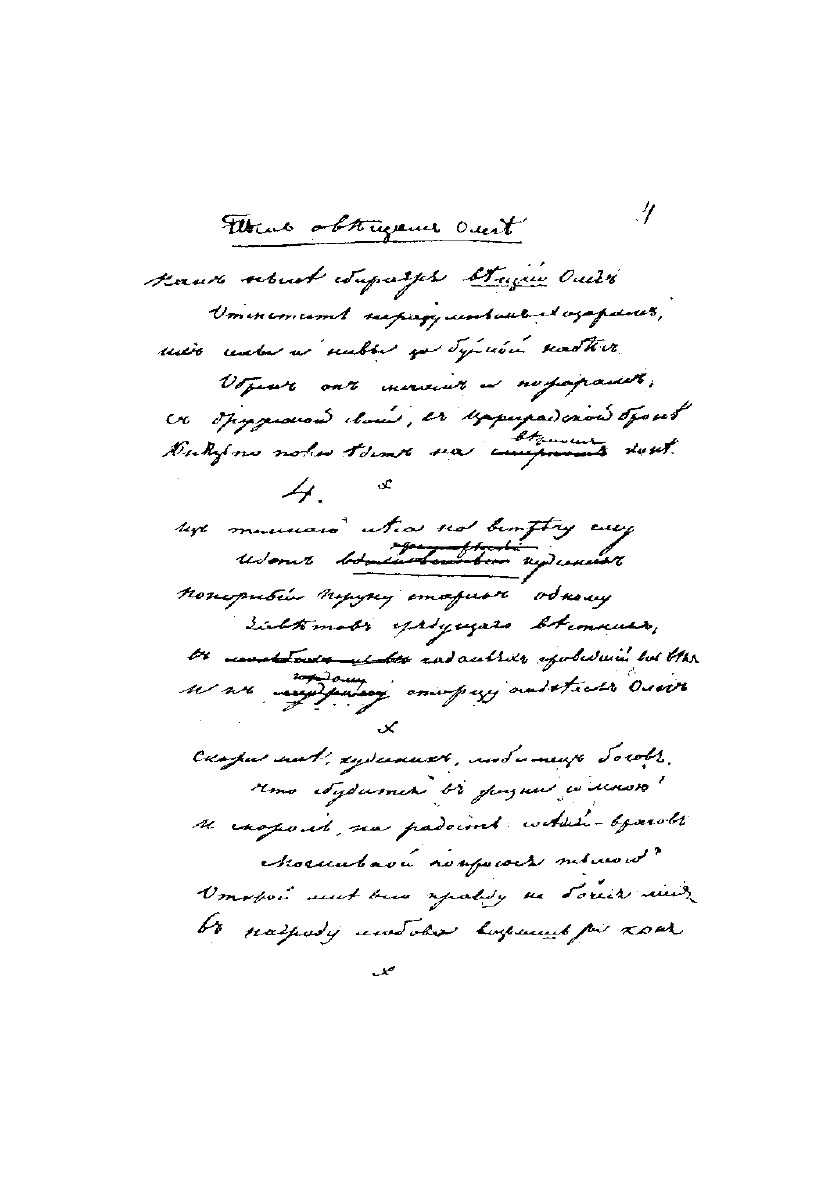 4
Пѣснь о вѣщемъ Олегѣ
Какъ нынѣ сбирается вѣщій Олегъ
Отмстить неразумнымъ Хозарамъ,
Ихъ села и нивы за буйной набѣгъ
Обрекъ онъ мечамъ и пожарамъ;
Съ дружиной своей, въ Цареградской бронѣ
Князь по полю ѣдетъ на вѣрномъ конѣ.
4.
Изъ темнаго лѣса на встрѣчу ему
Идетъ вдохновенный кудесникъ
Покорный Перуну старикъ одному
Завѣтовъ грядущаго вѣстникъ,
Въ гаданьяхъ проведшій весь вѣкъ
И къ мудрому старцу подъѣхалъ Олегъ
Скажи мнѣ, кудесникъ, любимецъ боговъ,
Что сбудется въ жизни со мною?
И скоро ль, на радость сосѣдей-враговъ
Могильной покроюсь землею?
Открой мнѣ всю правду не бойся меня
Въ награду любова возьмешь ты коня